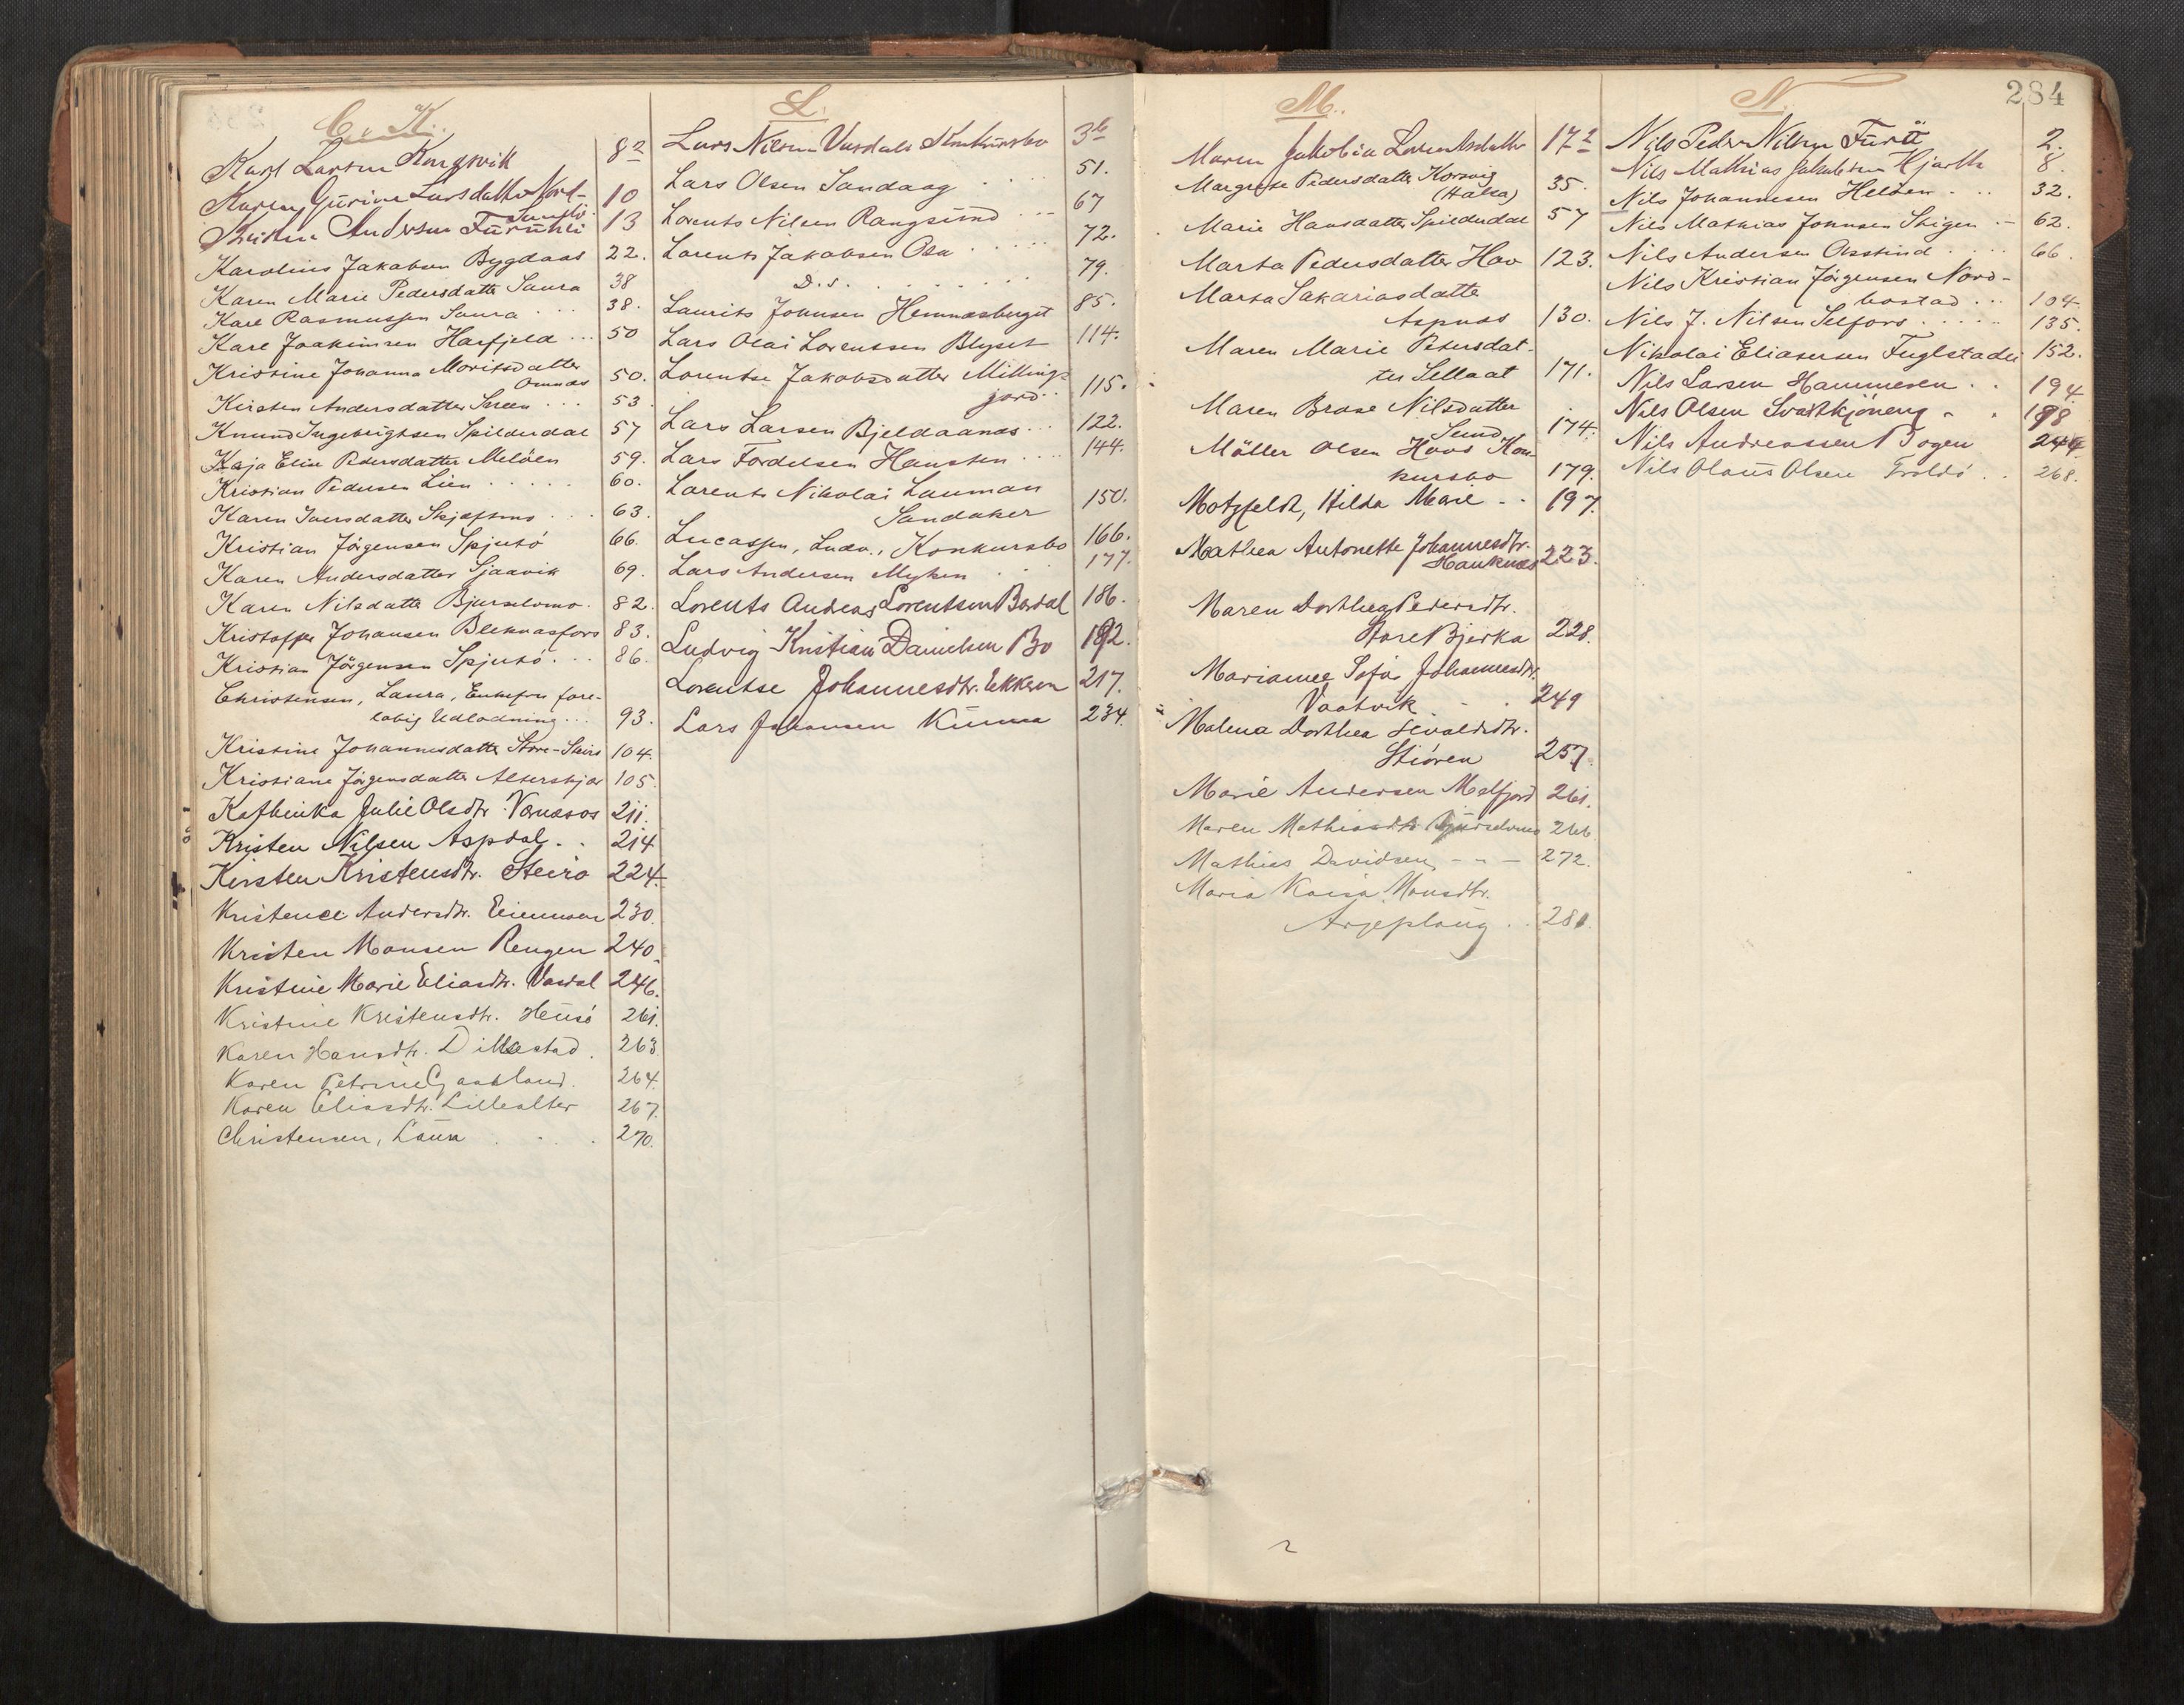 C. K.
Karl Larsen Kangsvik 8 2
Karen Gurine Larsdatter Nord-
10
Andersen Furuhei 13
Karolius Jakobsen Bygdaas 22.
Karen Marie Pedersdatter Saura 38
Karl Rasmussen Saura . . . 38.
Karl Joakimsen Harfjeld . . . 50
Kristine Johanna Moritsdatter
Omnes 50.
Kirsten Andersdatter Sneen . . . 53.
Knund Ingebrigtsen Spilderdal 57
Kaja Elise Pedersdatter Melöen 59.
Kristian Pedersen Lien . . . . . 60.
Karen Iversdatter . . . 63.
Kristian Jörgensen Spjutö 66.
Karen Andersdatter Sjaavik 69.
Karen Nilsdatter Bjurselvmo. 82.
Kristoffer Johansen Bleknasfors 83.
Kristian Jörgensen Spjutö. . . 86.
Christensen, Laura, fore-
löbig Udlodning . . . 93.
Kristine Johannesdatter Store- 104.
Kristiane Jörgensdatter 105.
Kathinka Julie Olsdtr. 211.
Kristen Nilsen Aspdal. . . 214
Kirsten Kristensdtr. Steiro 224.
Kristence Andersdtr. 230.
Kristen Monsen Rengen 240.
Kristine Marie Eliasdtr. Vasdal 246.
Kristine Kristensdtr. Heusö 261.
Karen Hansdtr. Dillestad. 263
Karen Petrine Gaasland. 264.
Karen Eliasdtr. Lillealter 267.
Christensen, Laura . . . . 270.
L.
Lars Nilsen Vasdals Konkursbo 3 b
Lars Olsen Sandaag . . . . 51.
Lorents Nilsen Rangsund . . - 67
Lorents Jakobsen Osa . . . . . 72.
D. s. . . . . . . 79.
Laurits Johnsen Hemnesberget 85.
Lars Olai Lorentsen Blyset 114.
Lorentse Jakobsdatter Milling-
gord . . 115.
Lars Larsen Bjeldaanes . . . 122.
Lars Fordelsen Hausten . . . . 144.
Lorents Nikolai Lauman
Sandaker 150.
Lucassen, Ludv., Konkursbo 166.
Lars Andersen Myken . . . 177.
Lorents Andreas Lorentsen Bardal 186.
Ludvig Kristian Danielsen Bo 192.
Lorentse Johannesdtr. Ekkern 217.
Lars Johansen Kunna 234.
M.
Maren Jakobia Lorentsdatter 17 2
Margrete Pedersdatter Korsvig
(Halsa) 35.
Marie Hansdatter Spilderdal 57
Marta Pedersdatter Hov 123.
Marta Sakariasdatter
Aspnes 130.
Maren Marie Petersdat-
ter Sellaat 171.
Maren Brase Nilsdatter
Sund 174.
Möller Olsen Hovs Kon-
kursbo 179.
Motzfeldt, Hilda Marie . . 197.
Mathea Antonette Johannesdtr.
Hauknes 223.
Maren Dorthea Pedersdtr.
Store Bjerka 228.
Marianne Sofie Johannesdtr.
Vaatvik . . . 249
Malena Dorthea Sivaldsdtr.
Stiören 257.
Marie Andersen Melfjord 261.
Maren Mathiasdtr. Bjurselvmo 266.
Mathias Davidsen - - - 272.
Maria Kaisa Monsdtr.
Arjeploug . . 281.
N. 284
Nils Peder Nilsen 2.
Nils Mathias Jakobsen Hjarth 8.
Nils Johannesen Heldøen . . . 32.
Nils Mathias Johnsen Stigen . - 62.
Nils Andersen Oxstind . . . . 66.
Nils Kristian Jörgensen Nord-
bostad . . . 104.
Nils J. Nilsen Selfors . . . . . 135.
Nikolai Eliasersen Fuglstadli 152.
Nils Larsen Hammeren . . 194.
Nils Olsen Svartkjöneng - . 198
Nils Andreassen Bogen 244
Nils Olaus Olsen Traldö . . 268.